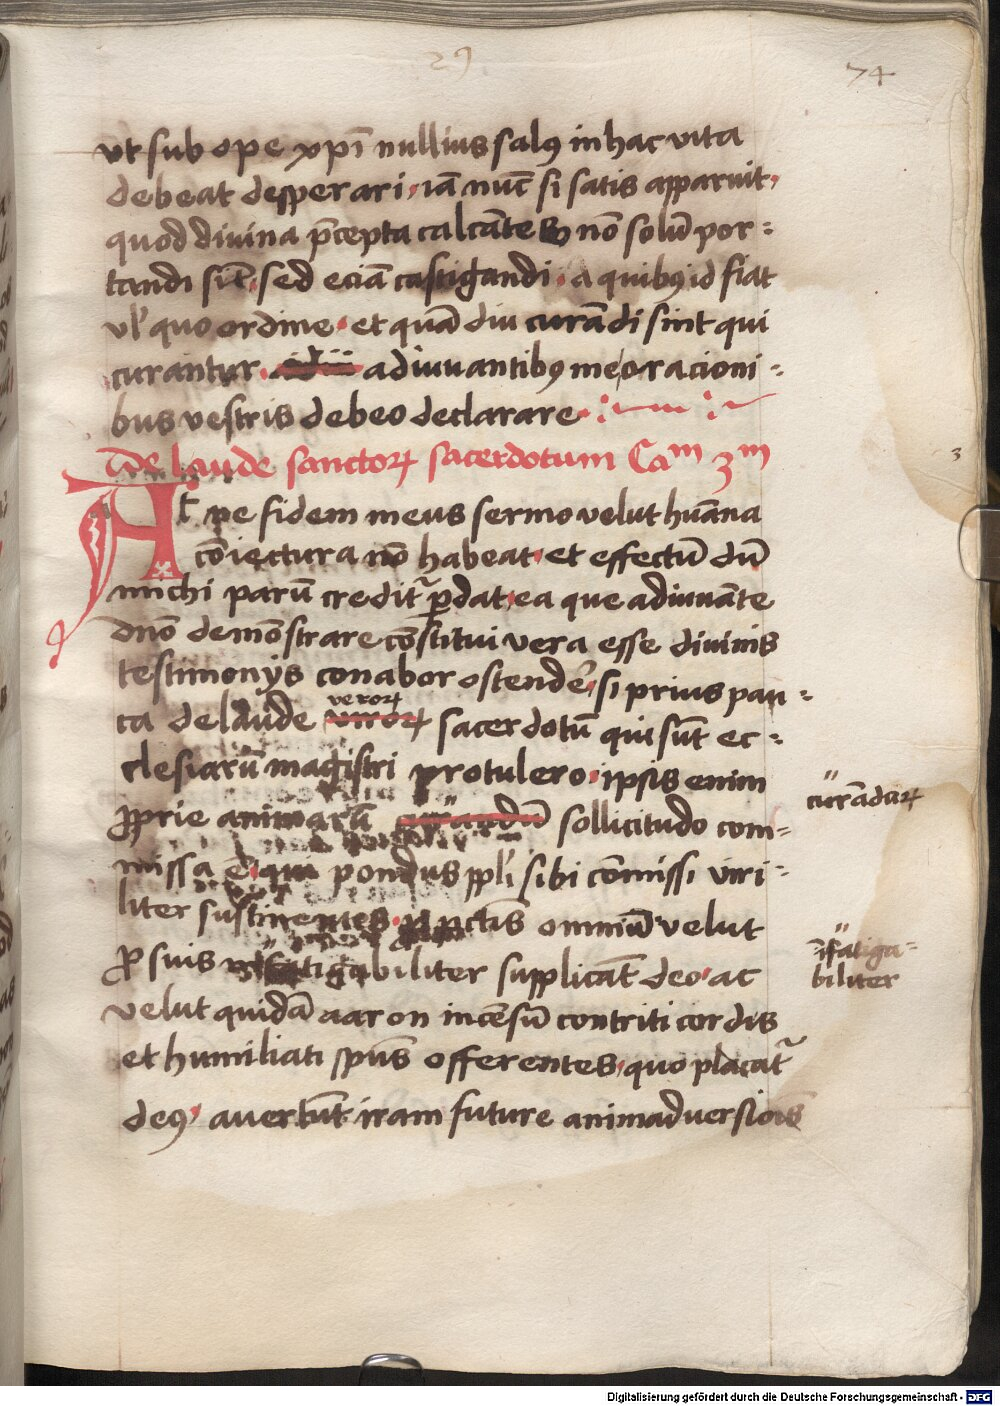 29
74
vt sub ope xp̄i nullius salꝯ in hac vita
debeat desperari · iā nūc si satis apparuit ·
quod diuina p̄cepta calcātes nō solū por:
tandi sīt · sed eciā castigandi · a quibꝯ id fiat
vl' quo ordine · et quā diu curādi sint qui
curantur · adiuuantibꝯ me oracioni:
bus vestris debeo declarare ·
De laude sanctoꝝ sacerdotum Caᵐ 3ᵐ
3
At ne fidem meus sermo velut huāna
cōiectura nō habeat · et effectū dū
michi parū credit᷑ ꝑdat · ea que adiuuāte
dn̄o demōstrare cōstitui vera esse diuinis
testimonijs conabor ostendē · si prius pau:
ca de laude veroꝝ sacerdotū qui sūt ec:
clesiarū magistri protulero · ipsis enim
ꝓprie animarū curādaꝝ sollicitudo com=
missa ē · qui pondus ppl'i sibi cōmissi viri:
liter sustinentes · p̄ctīs omniū velut
ꝓ suis īfatiga=
biliter supplicāt deo · ac
velut quidā aaron incēsū contriti cordis
et humiliati sp̄us offerentes · quo placat᷑
deꝯ · auertūt iram future animaduersiōis
Digitalisierung gefördert durch die Deutsche Forschungsgemeinschaft - DFG